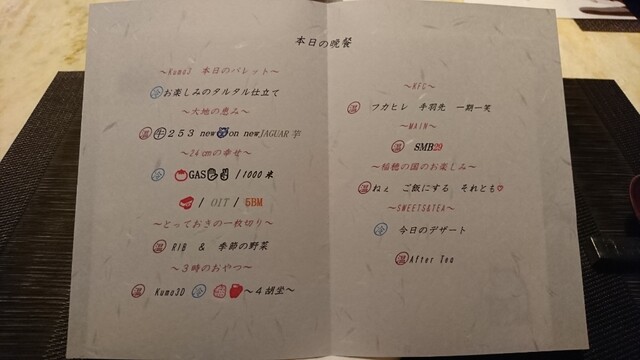 本日の晩餐
～Kumo3 本日のパレット～
冷 お楽しみのタルタル仕立て
～大地の恵み～
温 牛 253 new on new JAGUAR 芋
～24cmの幸せ～
冷 GAS / 1000 米
/ OIT / 5BM
～とっておきの一枚切り～
温 RIB & 季節の野菜
～3時のおやつ～
温 Kumo3D 冷 ～4胡坐～
～KFC～
温 フカヒレ 手羽先 一期一笑
～MAIN～
温 SMB29
～稲穂の国のお楽しみ～
温 ねぇ ご飯にする それとも♡
～SWEETS&TEA～
冷 今日のデザート
温 After Tea